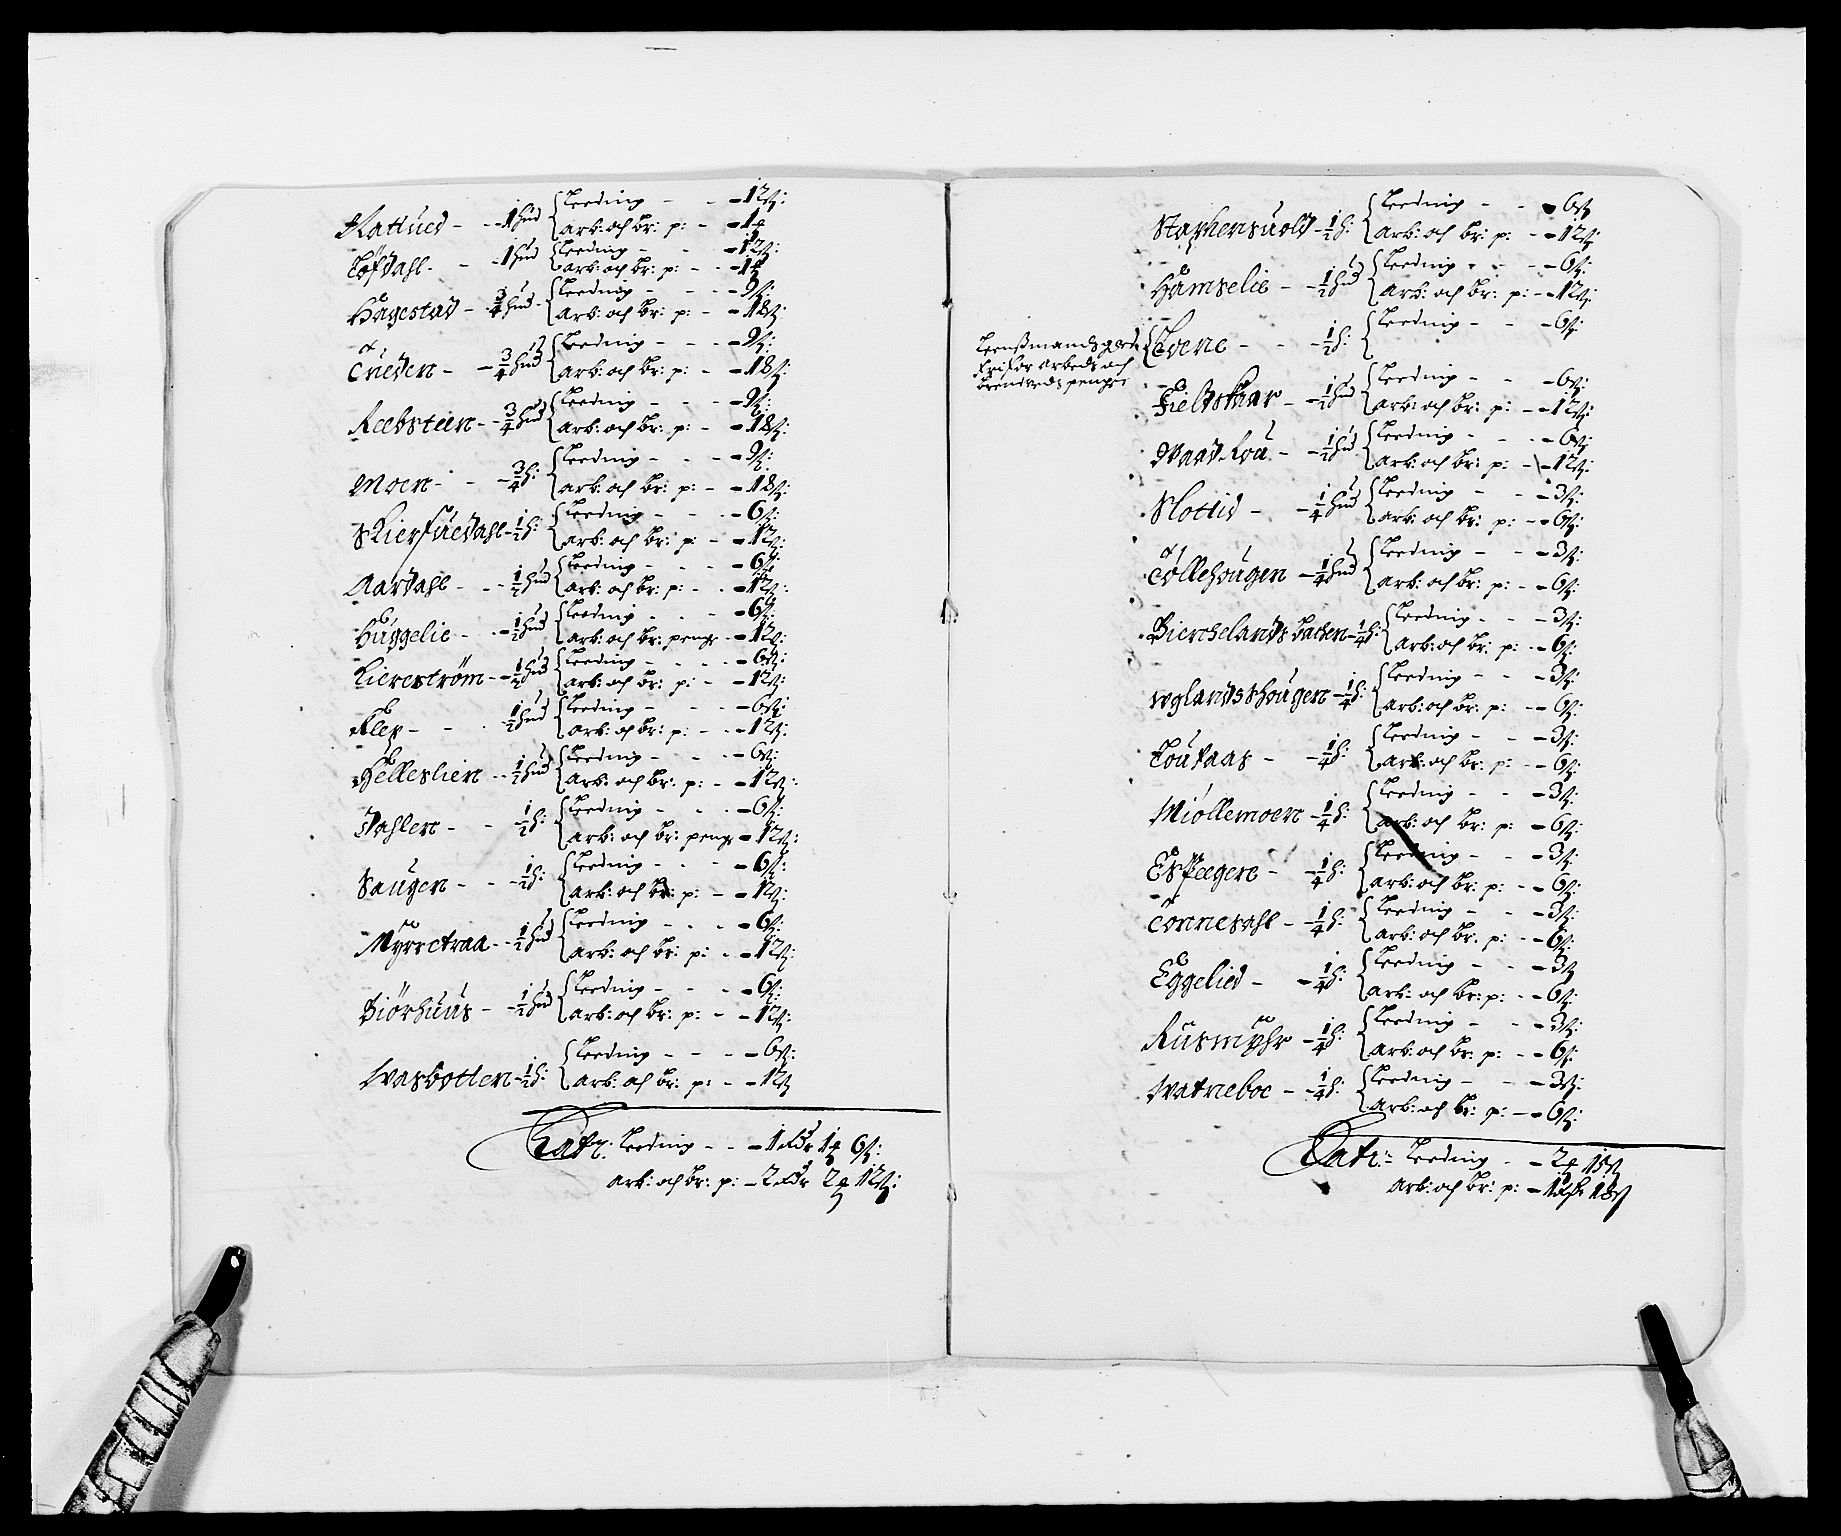 Rattued - - 1 hud { Leeding - - - 12 ß:
{ arb: och br: p: - - 1 ₰
Løfdahl - - 1 hud { Leeding - - - 12 ß:
{ arb: och br: p: - - 1 ₰
Hågestad - 3/4 hud - { Leeding - - - 9 ß:
{ arb: och br: p: - - 18 ß:
Tueden - - 3/4 hud { Leeding - - - 9 ß:
{ arb: och br: p: - - 18 ß:
Reebsteen - - 3/4 hud { Leeding - - - 9 ß:
{ arb: och br: p: - - 18 ß:
Moen - - - 3/4 h: { Leeding - - - 9 ß:
{ arb: och br: p: - - 18 ß:
Skierfuedahl - 1/2 h: { Leeding - - - 6 ß:
{ arb: och br: p: - - 12 ß:
Aardahl - - 1/2 hud { Leeding - - - 6 ß:
{ arb: och br: p: - - 12 ß:
Huggelie - - 1/2 hud { Leeding - - - 6 ß:
{ arb: och br: penge - 12 ß:
Lierestrøm - - 1/2 hud { Leeding - - - 6 ß:
{ arb: och br: p: - - 12 ß:
Klep - - - 1/2 hud { Leeding - - - 6 ß:
{ arb: och br: p: - - 12 ß:
Helleslien - - 1/2 hud { Leeding - - - 6 ß:
{ arb: och br: p: - - 12 ß:
Dahlen - - 1/2 h: { Leeding - - - 6 ß:
{ arb: och br: penge - 12 ß:
Haugen - - 1/2 h: { Leeding - - - 6 ß:
{ arb: och br: p: - - 12 ß:
Myrretraa - - 1/2 hud { Leeding - - - 6 ß:
{ arb: och br: p: - - 12 ß:
Biørhuus - - 1/2 hud { Leeding - - - 6 ß:
{ arb: och br: p: - - 12 ß:
Wasbotten - 1/2 h: { Leeding - - - 6 ß:
{ arb: och br: p: - - 12 ß
Latr: Leeding - - - 1 rdr 1 ₰ 6 ß:
arb: och br: p: - 2 rdr 2 ₰ 12 ß:
Staphensuold - 1/2 h: { Leeding - - - 6 ß
{ arb: och br: p: - - 12 ß:
Hamselie - - 1/2 hud { Leeding - - - 6 ß:
{ arb: och br: p: - - 12 ß:
Leensmands gord
fri for arbeds och
brendveds penger
{ Tvene - - - 1/2 h: { Leeding - - - 6 ß:
Fieldskaar - - 1/2 hud { Leeding - - - 6 ß:
{ arb: och br: p: - - 12 ß:
Waadkou - - 1/2 hud { Leeding - - - 6 ß:
{ arb: och br: p: - - 12 ß:
Slottid - - 1/4 hud { Leeding - - - 3 ß:
{ arb: och br: p: - - 6 ß:
Tollehougen - 1/4 hud { Leeding - - - 3 ß:
{ arb: och br: p: - - 6 ß:
Bierchelands backen - 1/4 h: { Leeding - - - 3 ß:
{ arb: och br: p: - - 6 ß:
Uglandshougen - 1/4 h: { Leeding - - - 3 ß:
{ arb: och br: p: - - 6 ß:
Loufaas - - 1/4 h: { Leeding - - - 3 ß:
{ arb: och br: p: - - 6 ß:
Miollemoen - 1/4 h: { Leeding - - - 3 ß:
{ arb: och br: p: - - 6 ß:
Espeegen - - 1/4 h: { Leeding - - - 3 ß:
{ arb: och br: p: - - 6 ß:
Tonnesahl - - 1/4 h: { Leeding - - - 3 ß:
{ arb: och br: p: - - 6 ß:
Eggelied - - 1/4 h: { Leeding - - - 3 ß
{ arb: och br: p: - - 6 ß:
Rusmyhr - - 1/4 h: { Leeding - - - 3 ß:
{ arb: och br: p: - - 6 ß:
Watneboe - - 1/4 h: { Leeding - - - 3 ß:
{ arb: och br: p: - - 6 ß:
Latr: Leeding - - 2 ₰ 15 ß
arb: och br: p: - 1 rdr 18 ß